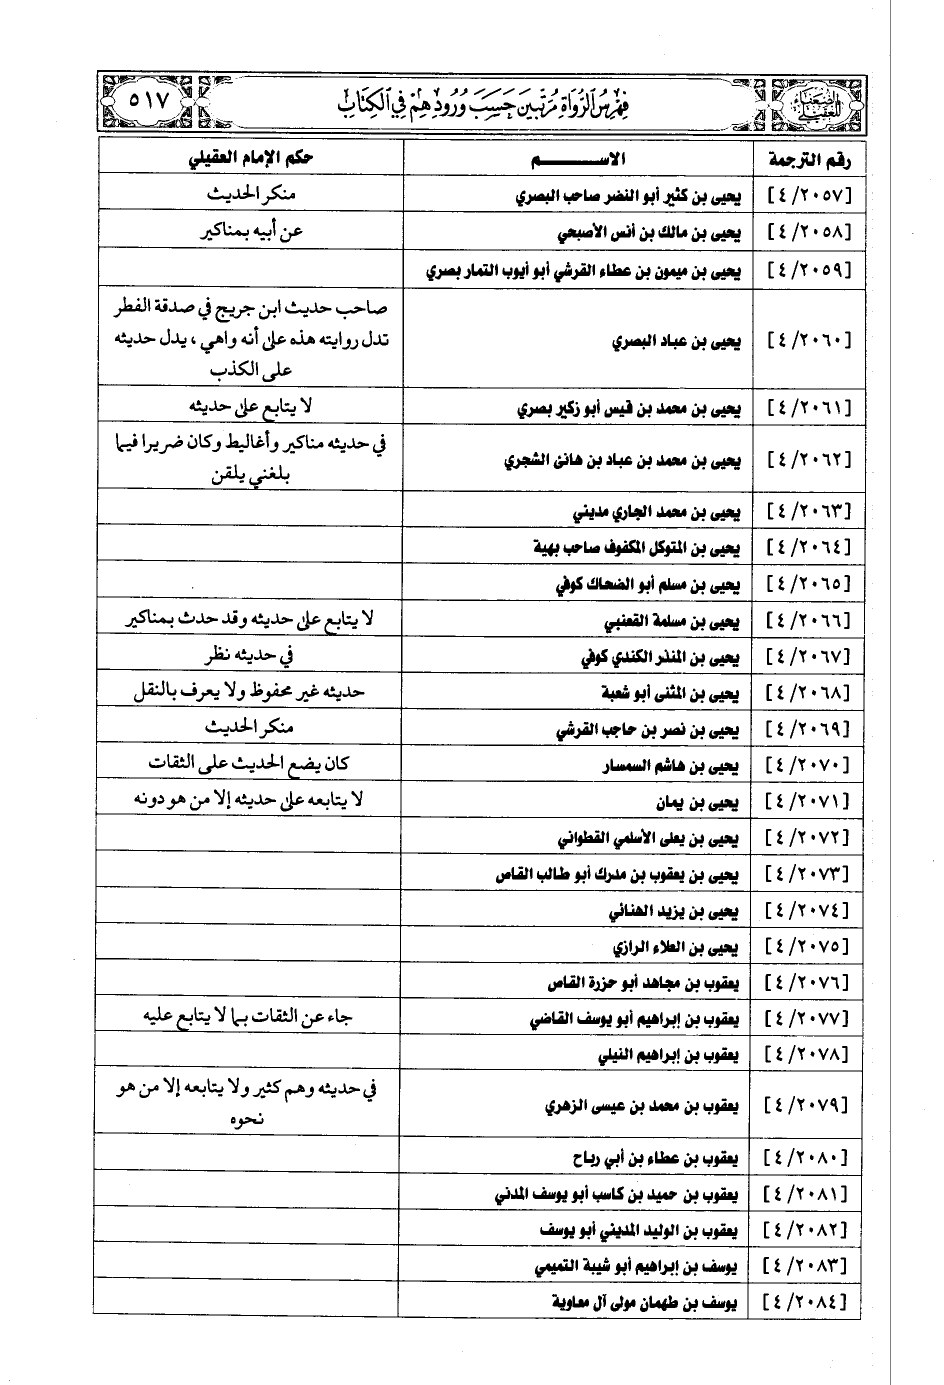 الضعفاء للعقيلي
فهرس الرواة مرتبين حسب ورودهم في الكتاب
٥١٧
رقم الترجمة الاســـــم حكم الإمام العقيلي
[٤/٢٠٥٧] يحيى بن كثير أبو النضر صاحب البصري منكر الحديث
[٤/٢٠٥٨] يحيى بن مالك بن أنس الأصبحي عن أبيه بمناكير
[٤/٢٠٥٩] يحيى بن ميمون بن عطاء القرشي أبو أيوب التمار بصري
[٤/٢٠٦٠] يحيى بن عباد البصري صاحب حديث ابن جريج في صدقة الفطر
تدل روايته هذه على أنه واهي ، يدل حديثه
على الكذب
[٤/٢٠٦١] يحيى بن محمد بن قيس أبو زكير بصري لا يتابع على حديثه
[٤/٢٠٦٢] يحيى بن محمد بن عباد بن هانئ الشجري في حديثه مناكير وأغاليط وكان ضريرا فيما
بلغني يلقن
[٤/٢٠٦٣] يحيى بن محمد الجاري مديني
[٤/٢٠٦٤] يحيى بن المتوكل المكفوف صاحب بهية
[٤/٢٠٦٥] يحيى بن مسلم أبو الضحاك كوفي
[٤/٢٠٦٦] يحيى بن مسلمة القعنبي لا يتابع على حديثه وقد حدث بمناكير
[٤/٢٠٦٧] يحيى بن المنذر الكندي كوفي في حديثه نظر
[٤/٢٠٦٨] يحيى بن المثنى أبو شعبة حديثه غير محفوظ ولا يعرف بالنقل
[٤/٢٠٦٩] يحيى بن نصر بن حاجب القرشي منكر الحديث
[٤/٢٠٧٠] يحيى بن هاشم السمسار كان يضع الحديث على الثقات
[٤/٢٠٧١] يحيى بن يمان لا يتابعه على حديثه إلا من هو دونه
[٤/٢٠٧٢] يحيى بن يعلى الأسلمي القطواني
[٤/٢٠٧٣] يحيى بن يعقوب بن مدرك أبو طالب القاص
[٤/٢٠٧٤] يحيى بن يزيد الهنائي
[٤/٢٠٧٥] يحيى بن العلاء الرازي
[٤/٢٠٧٦] يعقوب بن مجاهد أبو حزرة القاص
[٤/٢٠٧٧] يعقوب بن إبراهيم أبو يوسف القاضي جاء عن الثقات بما لا يتابع عليه
[٤/٢٠٧٨] يعقوب بن إبراهيم النيلي
[٤/٢٠٧٩] يعقوب بن محمد بن عيسى الزهري في حديثه وهم كثير ولا يتابعه إلا من هو
نحوه
[٤/٢٠٨٠] يعقوب بن عطاء بن أبي رباح
[٤/٢٠٨١] يعقوب بن حميد بن كاسب أبو يوسف المدني
[٤/٢٠٨٢] يعقوب بن الوليد المديني أبو يوسف
[٤/٢٠٨٣] يوسف بن إبراهيم أبو شيبة التميمي
[٤/٢٠٨٤] يوسف بن طهمان مولى آل معاوية